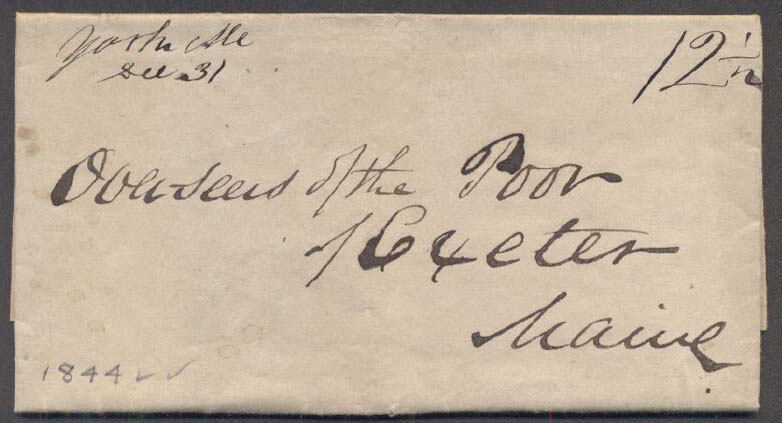 York Me
Dec 31
12½
Overseers of the Poor
of Exeter
Maine
1844